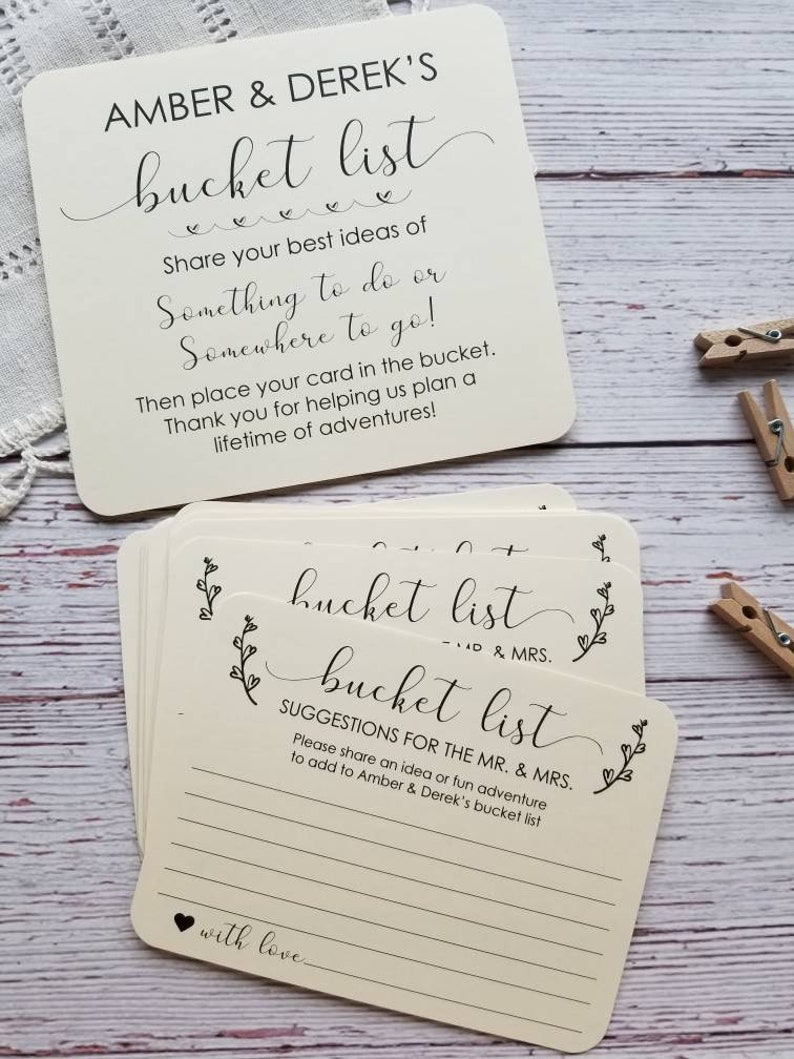 AMBER & DEREK'S
bucket list
Share your best ideas of
Something to do or
Somewhere to go!
Then place your card in the bucket.
Thank you for helping us plan a
lifetime of adventures!
bucket list
MR. & MRS.
bucket list
SUGGESTIONS FOR THE MR. & MRS.
Please share an idea or fun adventure
to add to Amber & Derek's bucket list
with love